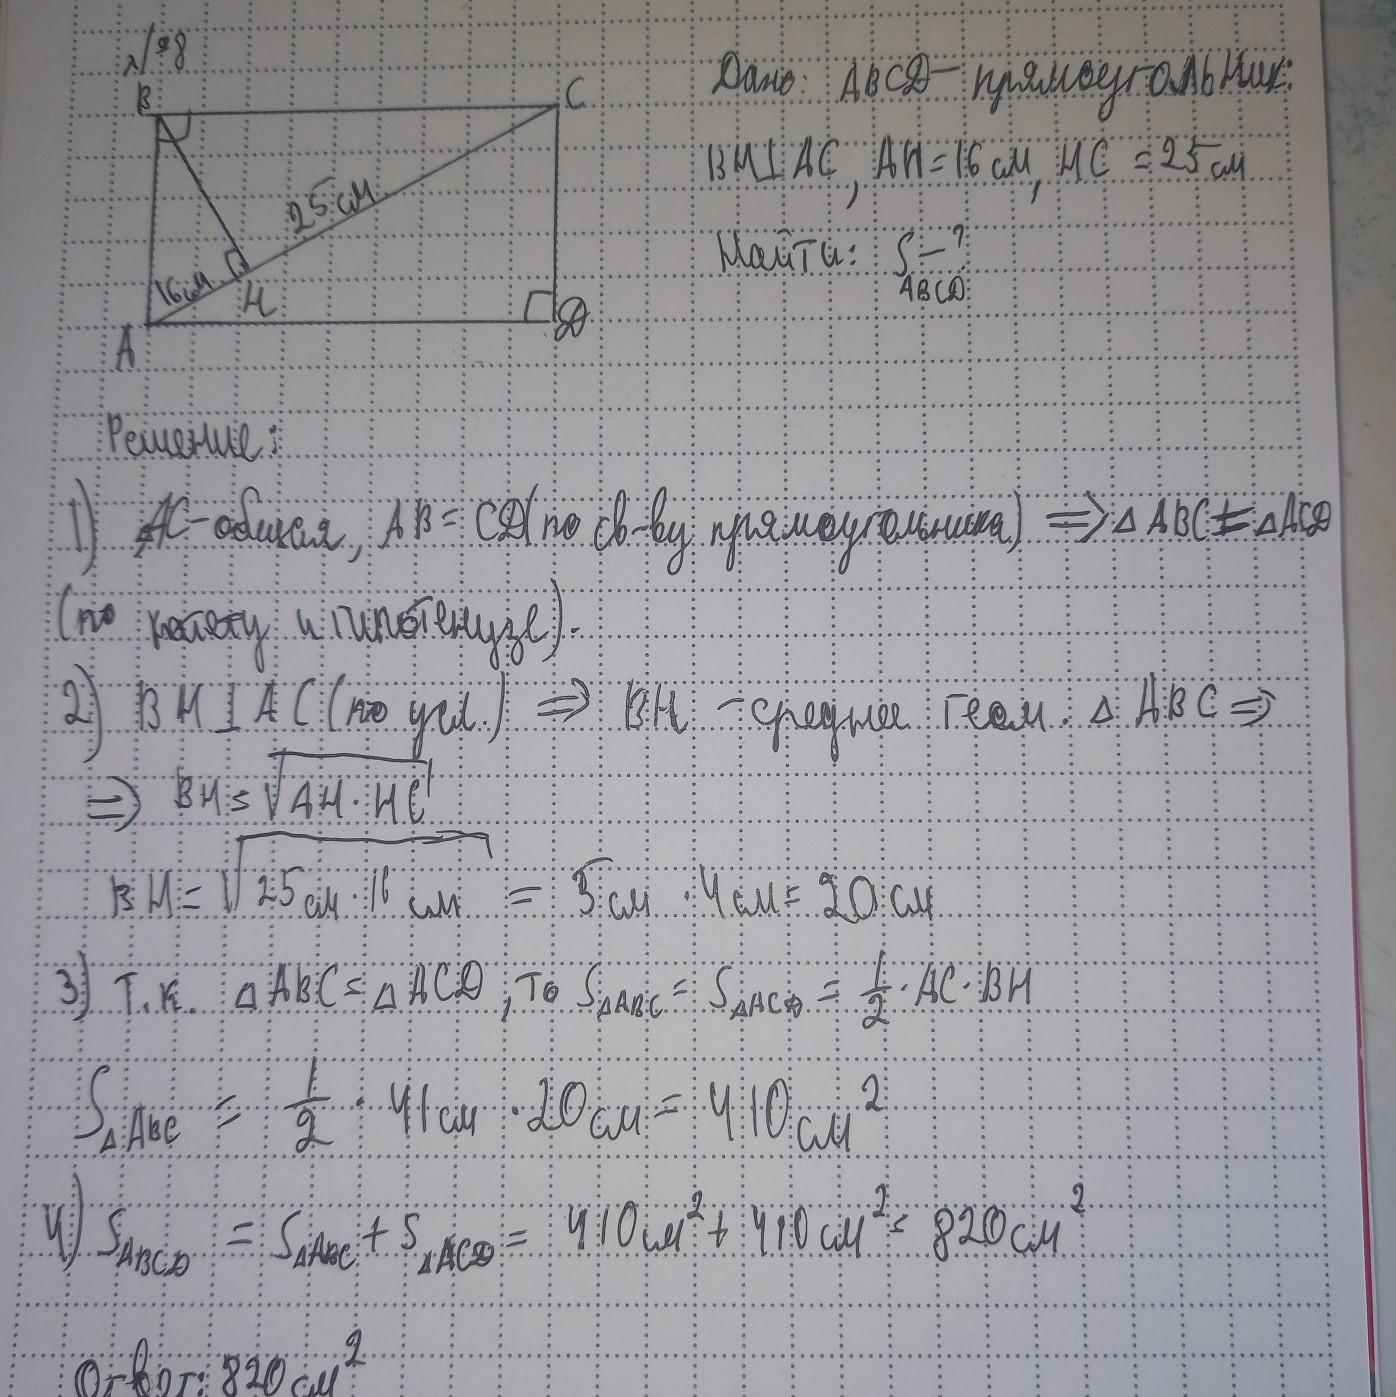 №8
B
C
25 см
16 см
H
A
D
Дано: ABCD – прямоугольник:
BH⊥AC, AH = 16 см, HC = 25 см
Найти: S ABCD – ?
Решение:
1) AC – общая, AB = CD (по св-ву прямоугольника) ⇒ △ABC = △ACD
(по катету и гипотенузе).
2) BH ⊥ AC (по усл.) ⇒ BH – среднее геом. △ABC ⇒
⇒ BH = √AH · HC
BH = √25 см · 16 см = 5 см · 4 см = 20 см
3) Т.к. △ABC = △ACD, то S△ABC = S△ACD = 1/2 · AC · BH
S△ABC = 1/2 · 41 см · 20 см = 410 см²
4) SABCD = S△ABC + S△ACD = 410 см² + 410 см² = 820 см²
Ответ: 820 см²